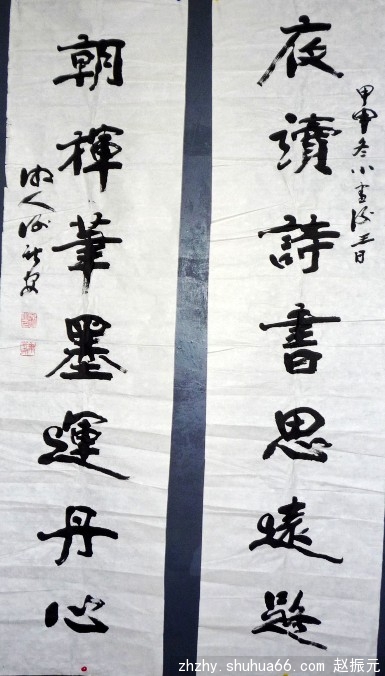 夜讀詩書思遠路
甲申冬小雪後三日
朝揮筆墨運丹心
zhzhy.shuhua66.com 赵振元